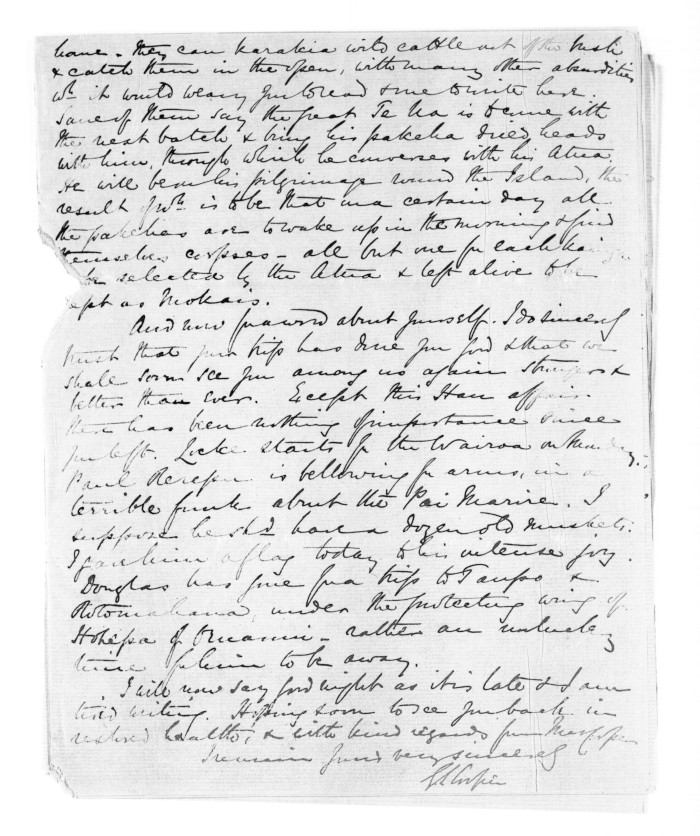 have - They can karakia wild cattle out of the bush
& catch them in the open, with many other absurdities
wh it would weary you to read & me to write here.
Some of them say the great Te Ua is to come with
the next batch & bring his pakeha dried heads
with him, through which he converses with his Atua.
He will be on his pilgrimage round the Island, the
result of wh is to be that on a certain day all
the pakehas are to wake up in the morning & find
themselves corpses - all but one for each
be selected by the Atua & left alive to be
kept as Mokais.
And now for a word about yourself. I do sincerely
trust that your trip has done you good & that we
shall soon see you among us again stronger &
better than ever. Except this Hau affair
there has been nothing of importance since
you left. Locke starts for the Wairoa on
Paul is bellowing for arms, in a
terrible funk about the Pai Marire. I
suppose he shd have a dozen old muskets.
I gave him a flag today to his intense joy.
Douglas has gone for a trip to Taupo &
Rotomahana, under the protecting wing of
of - rather an unlucky
time for him to be away.
I will now say good night as it is late & I am
tired writing. Hoping soon to see you back in
restored health, & with kind regards from Mrs Cooper
I remain yours very sincerely
GS Cooper